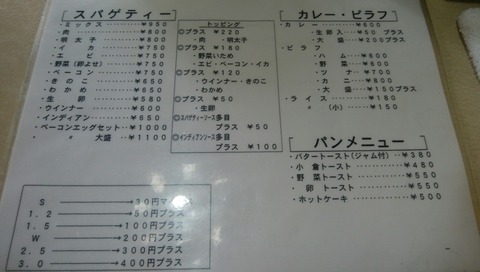 [スパゲティー]
・ミックス ――― ￥950
・肉 ――― ￥800
・明太子 ――― ￥800
・イカ ――― ￥750
・エビ ――― ￥750
・野菜(卵よせ) ― ￥750
・ベーコン ――― ￥750
・きのこ ――― ￥650
・わかめ ――― ￥650
・生卵 ――― ￥580
・ウインナー ――― ￥600
・インディアン ― ￥650
・ベーコンエッグセット ― ￥1000
・〃 大盛 ― ￥1100
トッピング
◎プラス ￥220
・肉 ・明太子
◎プラス ￥180
・野菜いため
・エビ・ベーコン・イカ
◎プラス ￥120
・ウインナー・きのこ
・わかめ
◎プラス ￥50
・生卵
◎スパゲティーソース多目
プラス ￥50
◎インディアンソース多目
プラス ￥100
[カレー・ピラフ]
・カレー ――― ￥600
・生卵入 ― ￥50プラス
・大盛 ― ￥205プラス
・ピラフ
・ハム ――― ￥600
・野菜 ――― ￥600
・ツナ ――― ￥700
・カニ ――― ￥700
・大盛 ― ￥150プラス
・ライス ――― ￥180
・〃 (小) ― ￥150
[パンメニュー]
・バタートースト(ジャム付) ‥ ￥380
・小倉トースト ――― ￥480
・野菜トースト ――― ￥550
・卵トースト ――― ￥550
・ホットケーキ ――― ￥500
S ――→ 30円マイナス
1.2 ――→ 50円プラス
1.5 ――→ 100円プラス
W ――→ 200円プラス
2.5 ――→ 300円プラス
3.0 ――→ 400円プラス